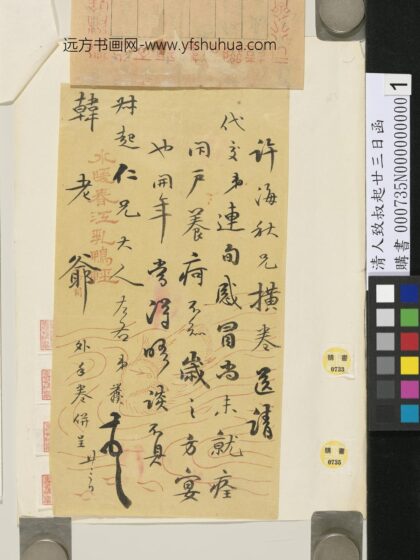 远方书画网-www.yfshuhua.com
許海秋兄橫卷送請
代交弟連旬感冒尚未就痊
閉戶養疴不歲之方宴
也開年當得晤談不具
叔起仁兄大人左右弟
韓老爺
外手卷併呈 廿三日
水暖春江乳鴨
清人致叔起廿三日函
購書 000735N000000000 1
購書
0733
購書
0735